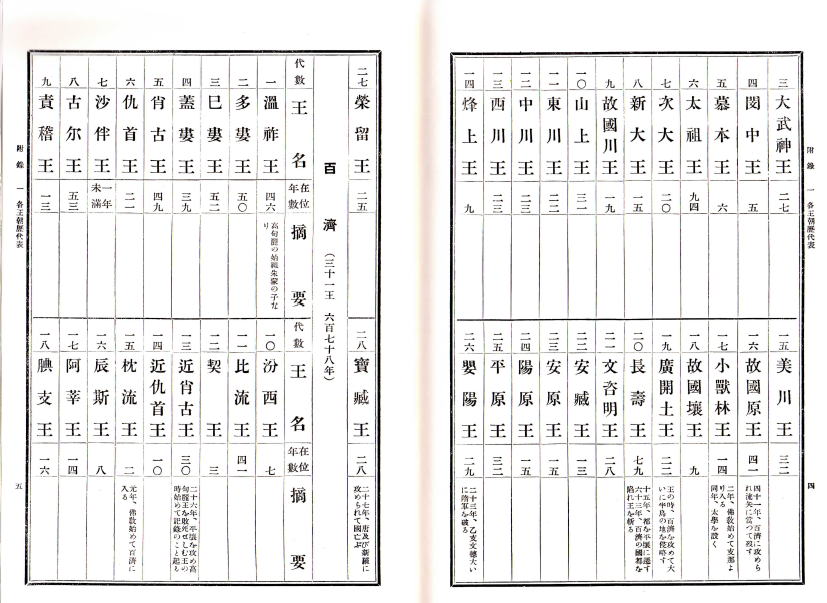 附錄 一 各王朝歷代表
四
三 大武神王 二七
四 閔中王 五
五 慕本王 六
六 太祖王 九四
七 次大王 二〇
八 新大王 一五
九 故國川王 一九
一〇 山上王 三一
一一 東川王 二二
一二 中川王 二三
一三 西川王 二三
一四 烽上王 九
一五 美川王 三二
一六 故國原王 四一
四十一年、百濟に攻めら
れ流矢に當つて歿す
一七 小獸林王 一四
二年、佛敎始めて支那よ
り入る
同年、太學を設く
一八 故國壤王 九
一九 廣開土王 二二
王の時、百濟を攻めて大
いに半島の地を侵略す
二〇 長壽王 七九
十五年、都を平壤に遷す
六十三年、百濟の國都を
陷れ王を斬る
二一 文咨明王 二八
二二 安臧王 一三
二三 安原王 一五
二四 陽原王 一五
二五 平原王 三二
二六 嬰陽王 二九
二十三年、乙支文德大い
に隋軍を破る
二七 榮留王 二五
二八 寶臧王 二八
二十七年、唐及び新羅に
攻められて國亡ぶ
百濟 (三十一王 六百七十八年)
代數 王名 在位年數 摘要
一 溫祚王 四六
高句麗の始祖朱蒙の子な
り
二 多婁王 五〇
三 巳婁王 五二
四 蓋婁王 三九
五 肖古王 四九
六 仇首王 二一
七 沙伴王 一年未滿
八 古尔王 五三
九 責稽王 一三
代數 王名 在位年數 摘要
一〇 汾西王 七
一一 比流王 四一
一二 契王 三
一三 近肖古王 三〇
二十六年、平壤を攻め高
句麗王を敗死せしむ王の
時始めて記錄のこと起る
一四 近仇首王 一〇
一五 枕流王 二
元年、佛敎始めて百濟に
入る
一六 辰斯王 八
一七 阿莘王 一四
一八 腆支王 一六
附錄 一 各王朝歷代表
五